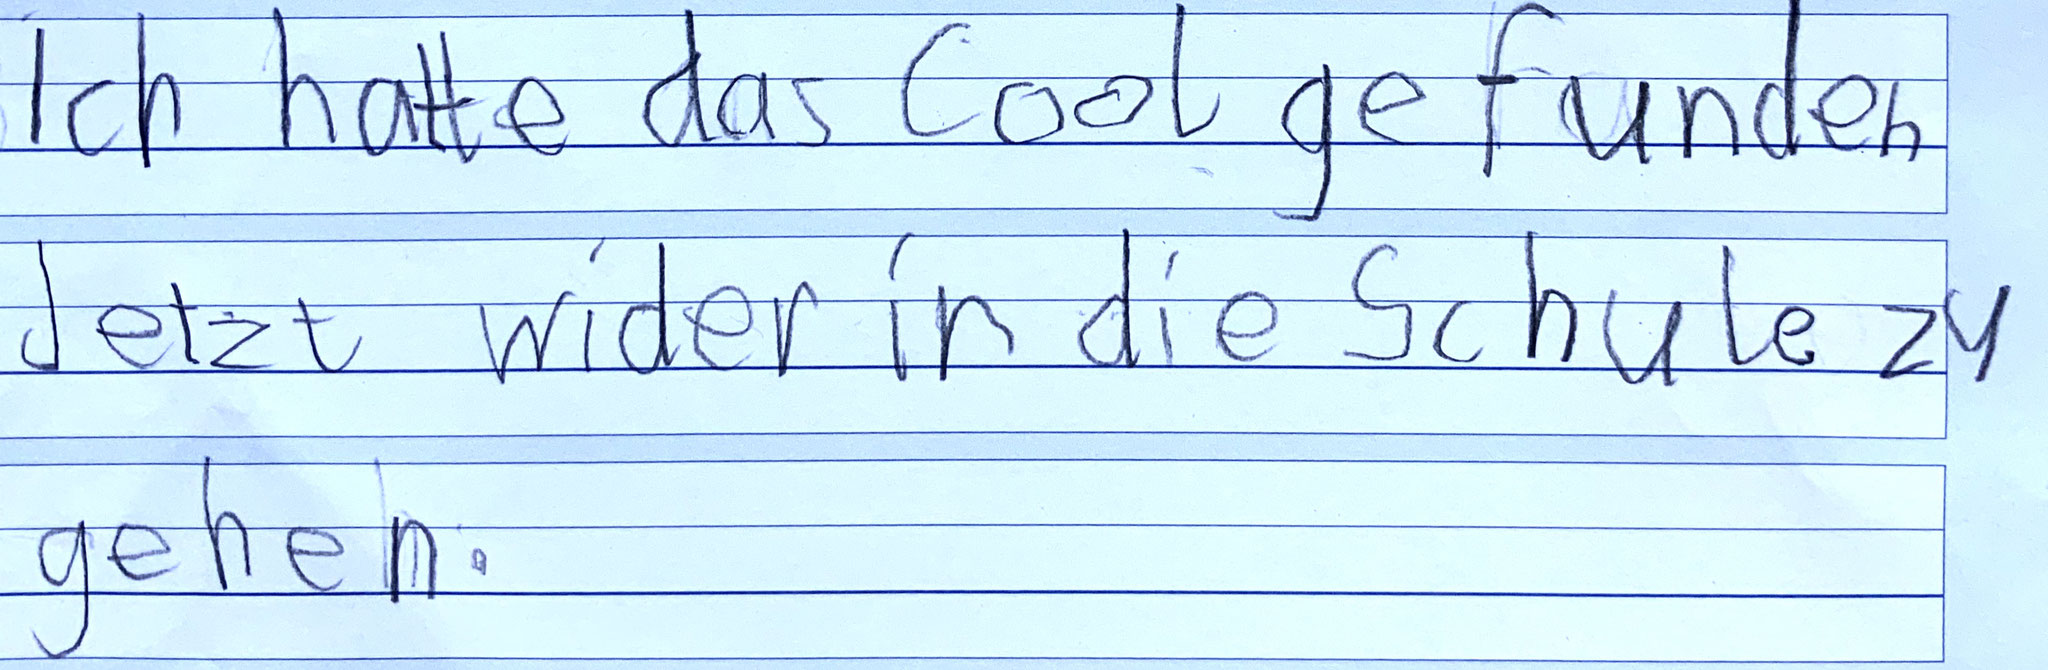 Ich hatte das Cool gefunden
Jetzt wider in die Schule zu
gehen.